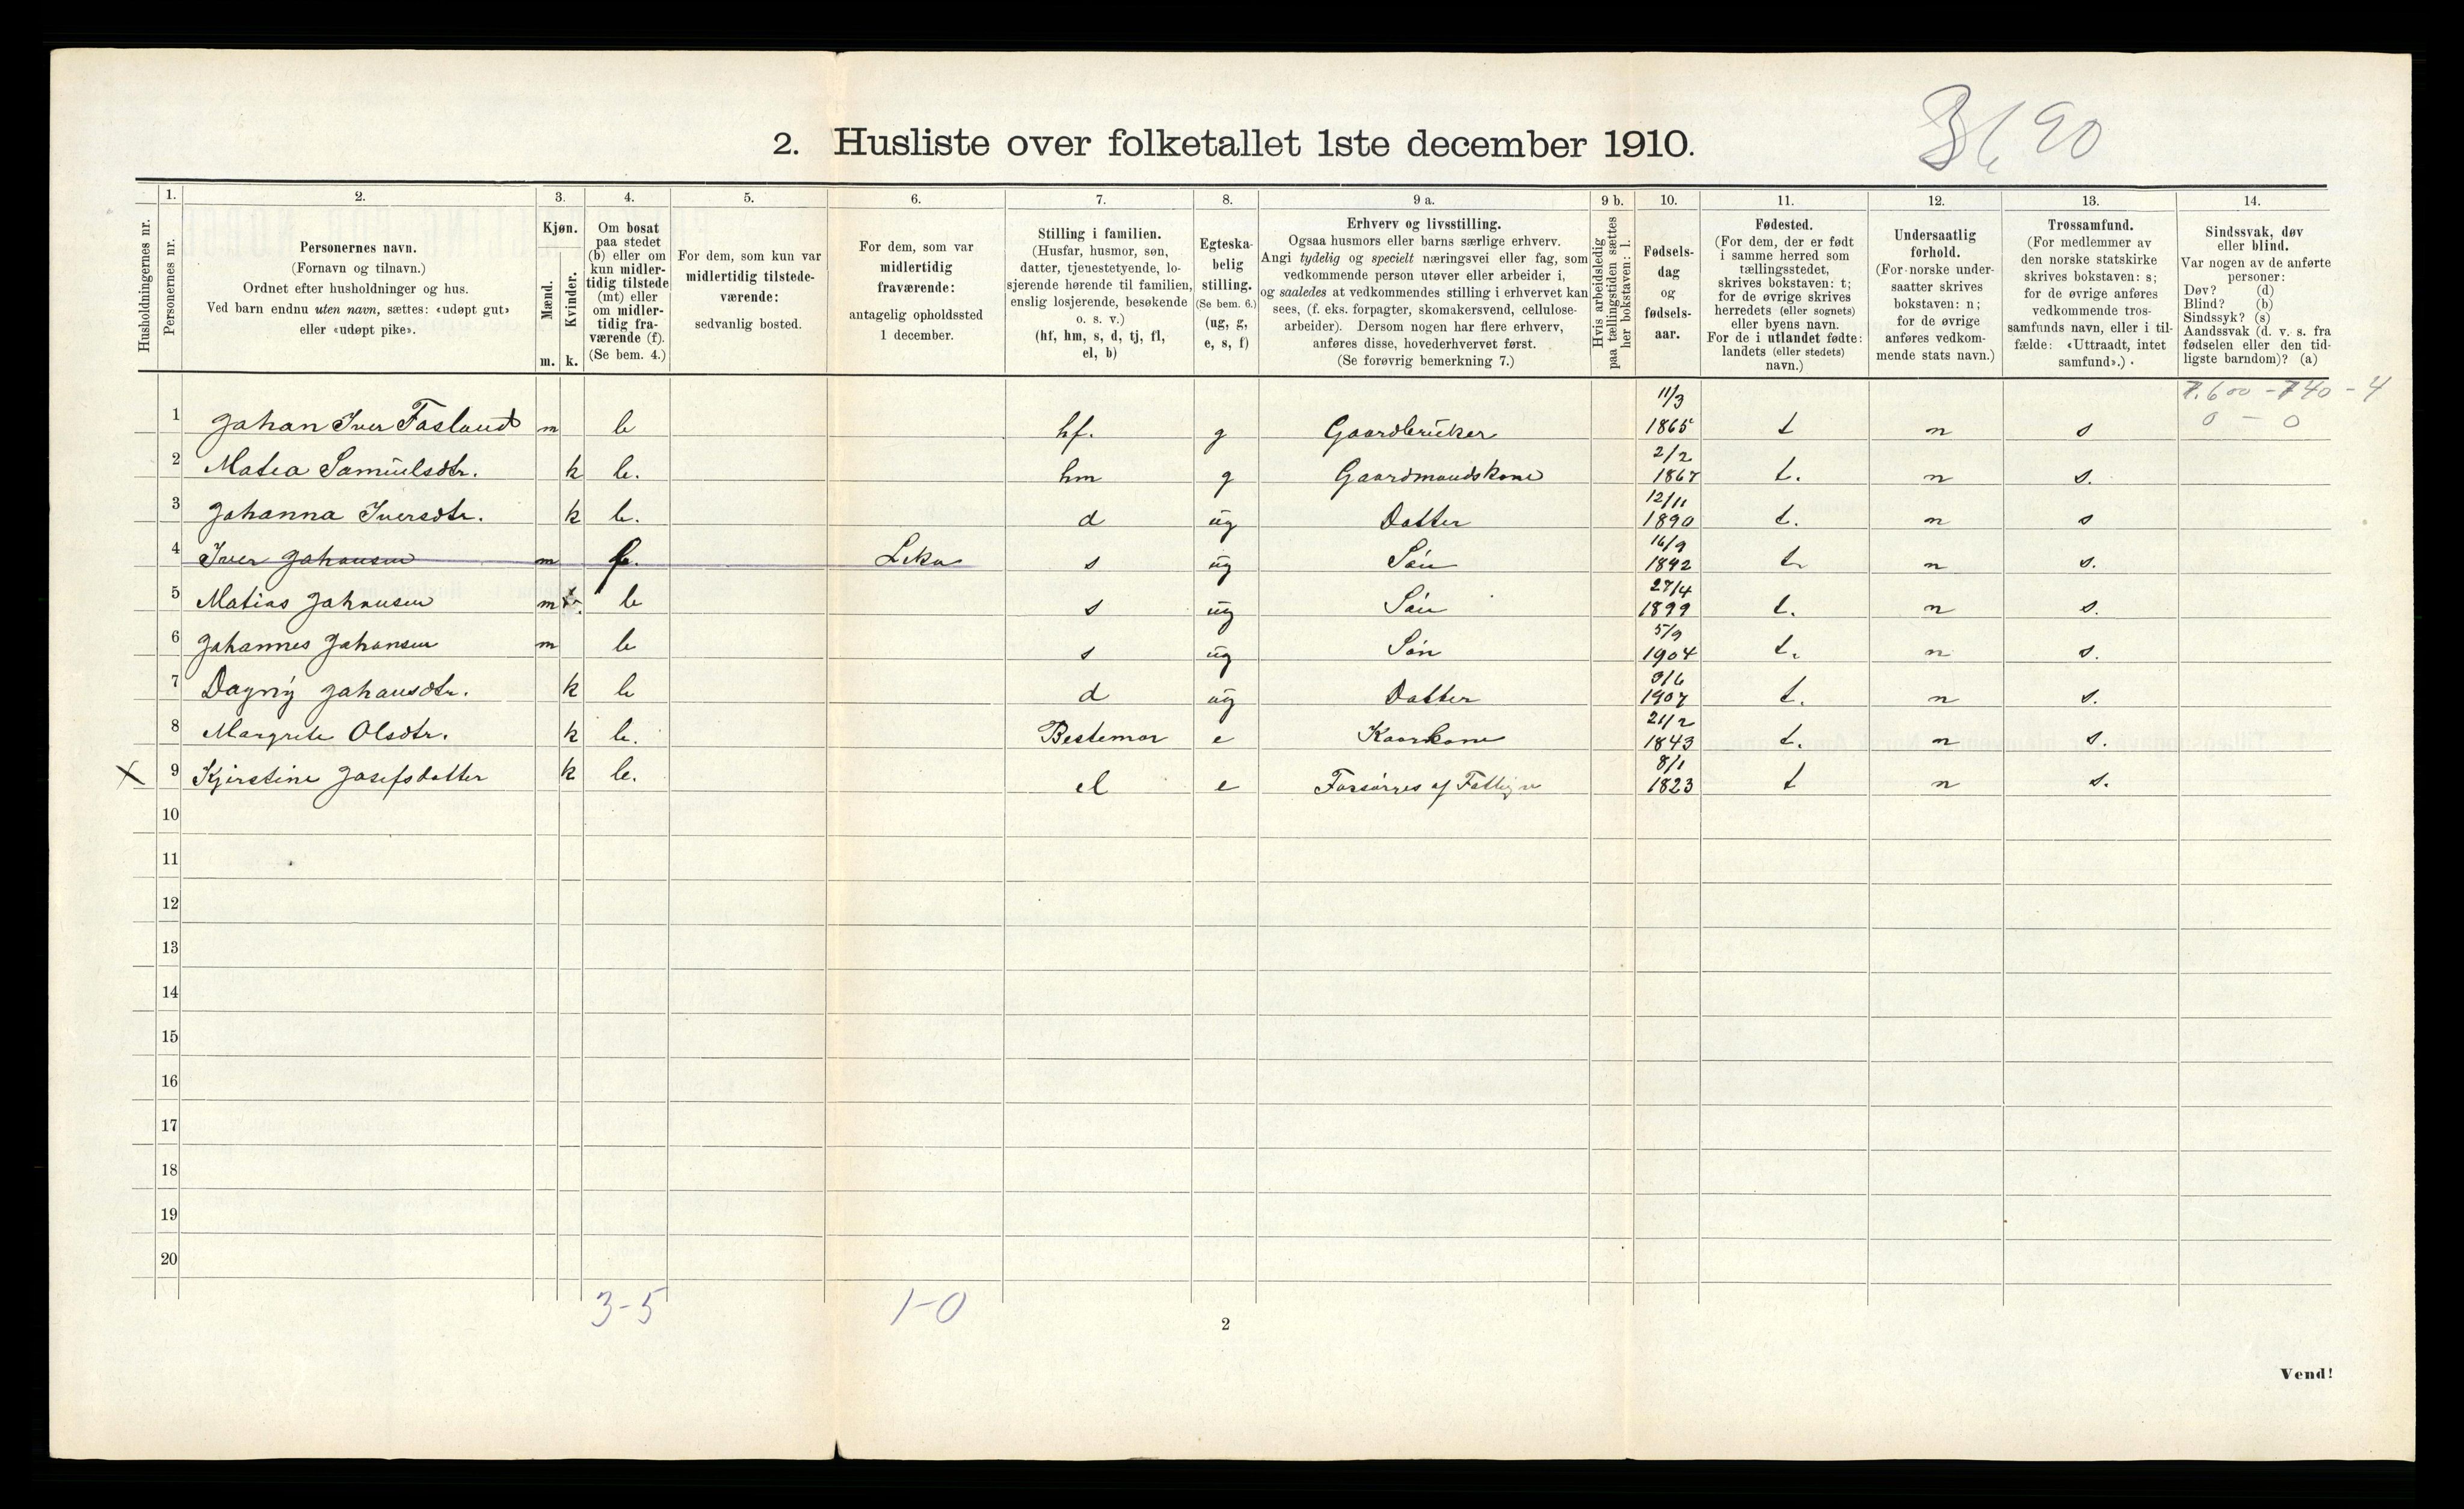 2. Husliste over folketallet 1ste december 1910.
Husholdningernes nr.
1. Personernes nr.
2. Personernes navn.
(Fornavn og tilnavn.)
Ordnet efter husholdninger og hus.
Ved barn endnu uten navn, sættes: «udøpt gut»
eller «udøpt pike».
3. Kjøn.
Mænd. Kvinder.
m. k.
4. Om bosat
paa stedet
(b) eller om
kun midler-
tidig tilstede
(mt) eller
om midler-
tidig fra-
værende (f).
(Se bem. 4.)
5. For dem, som kun var
midlertidig tilstede-
værende:
sedvanlig bosted.
6. For dem, som var
midlertidig
fraværende:
antagelig opholdssted
1 december.
7. Stilling i familien.
(Husfar, husmor, søn,
datter, tjenestetyende, lo-
sjerende hørende til familien,
enslig losjerende, besøkende
o. s. v.)
(hf, hm, s, d, tj, fl,
el, b)
8. Egteska-
belig
stilling.
(Se bem. 6.)
(ug, g,
e, s, f)
9 a. Erhverv og livsstilling.
Ogsaa husmors eller barns særlige erhverv.
Angi tydelig og specielt næringsvei eller fag, som
vedkommende person utøver eller arbeider i,
og saaledes at vedkommendes stilling i erhvervet kan
sees, (f. eks. forpagter, skomakersvend, cellulose-
arbeider). Dersom nogen har flere erhverv,
anføres disse, hovederhvervet først.
(Se forøvrig bemerkning 7.)
9 b. Hvis arbeidsledig
paa tællingstiden sættes
her bokstaven: l.
10. Fødsels-
dag
og
fødsels-
aar.
11. Fødested.
(For dem, der er født
i samme herred som
tællingsstedet,
skrives bokstaven: t;
for de øvrige skrives
herredets (eller sognets)
eller byens navn.
For de i utlandet fødte:
landets (eller stedets)
navn.)
12. Undersaatlig
forhold.
(For norske under-
saatter skrives
bokstaven: n;
for de øvrige
anføres vedkom-
mende stats navn.)
13. Trossamfund.
(For medlemmer av
den norske statskirke
skrives bokstaven: s;
for de øvrige anføres
vedkommende tros-
samfunds navn, eller i til-
fælde: «Uttraadt, intet
samfund».)
14. Sindssvak, døv
eller blind.
Var nogen av de anførte
personer:
Døv? (d)
Blind? (b)
Sindssyk? (s)
Aandssvak (d. v. s. fra
fødselen eller den tid-
ligste barndom)? (a)
0 - 0
1 Johan Iver Fasland m b hf. g Gaardbruker 11/3 1865 t n s
2 Matea Samuelsdtr. k b. hm g Gaardmandskone 2/2 1867 t. n s.
3 Johanna Iversdtr. k b. d ug Datter 12/11 1890 t. n s
4 Iver Johansen m f. Leka s ug Søn 16/9 1892 t. n s.
5 Matias Johansen m b s ug Søn 27/4 1899 t. n s.
6 Johannes Johansen m b s ug Søn 5/9 1904 t. n s.
7 Dagny Johansdtr. k b d ug Datter 1907 t. n s.
8 Margrete Olsdtr. k b. Bestemor e Kaarkone 21/2 1843 t. n s.
X 9 Kjirstine Josefsdatter k b. el e Forsørges af Fattigv 8/1 1823 t n s.
10
11
12
13
14
15
16
17
18
19
20
3-5 1-0
2
Vend!